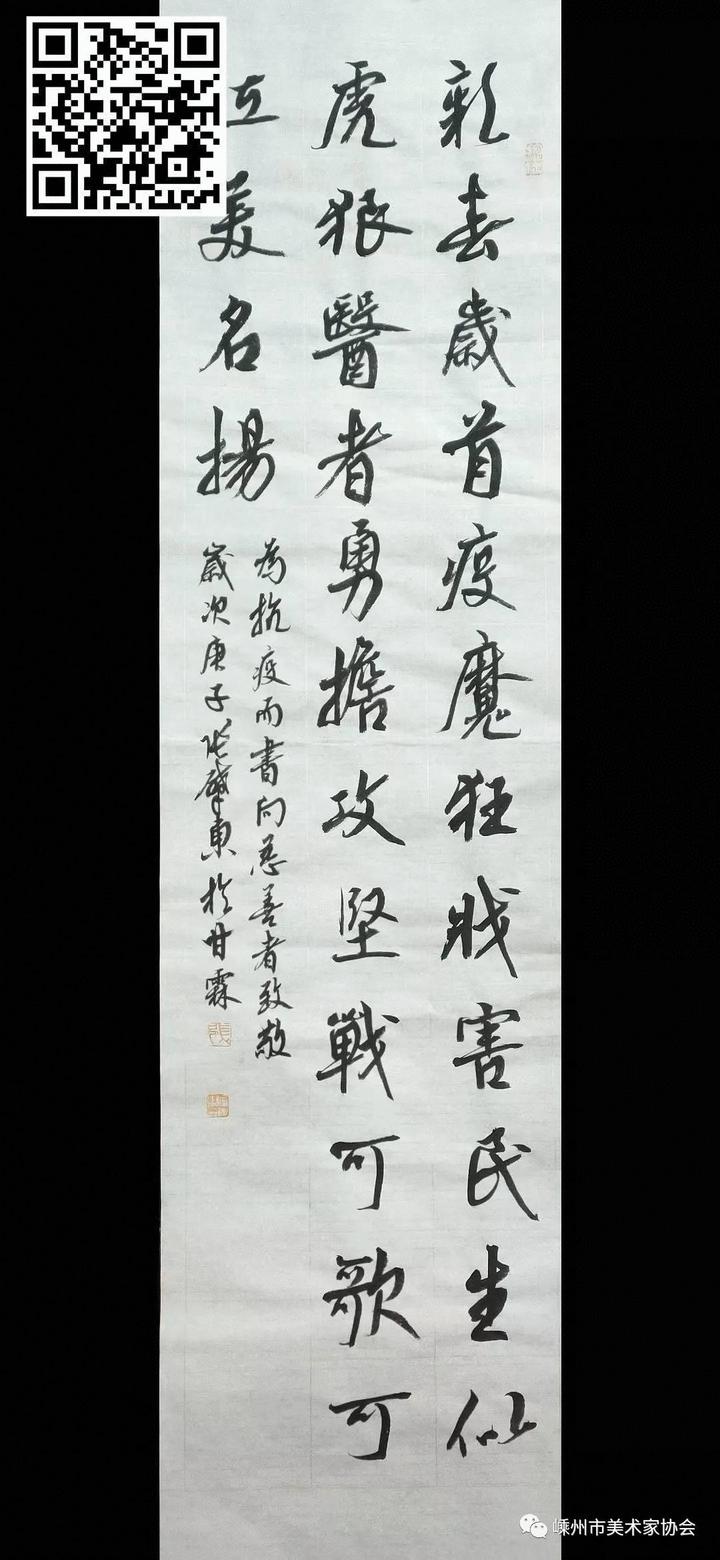 新春歲首疫魔狂戕害民生似
虎狼醫者勇擔攻堅戰可歌可
泣美名揚
為抗疫而書向慈善者致敬
歲次庚子張肇東於甘霖
張
嵊州市美术家协会